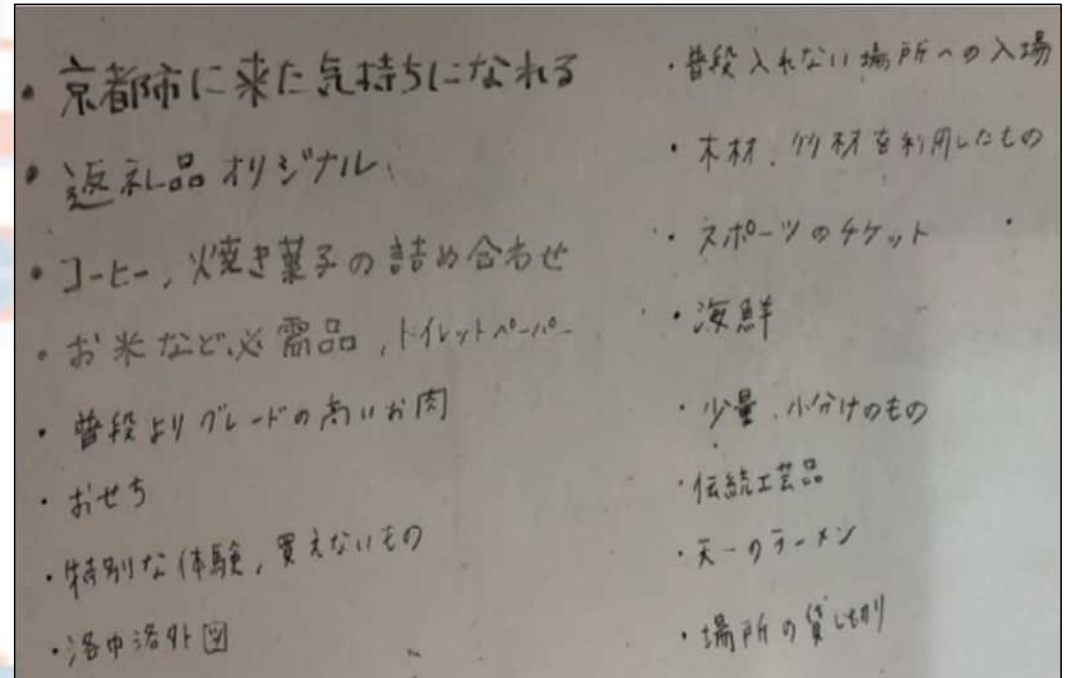 ・京都市に来た気持ちになれる
・返礼品オリジナル、
・コーヒー,焼き菓子の詰め合わせ
・お米など、必需品,トイレットペーパー
・普段よりグレードの高いお肉
・おせち
・特別な体験,買えないもの
・洛中洛外図
・普段入れない場所への入場
・木材、竹材を利用したもの
・スポーツのチケット
・海鮮
・少量、小分けのもの
・伝統工芸品
・天一のラーメン
・場所の貸し切り